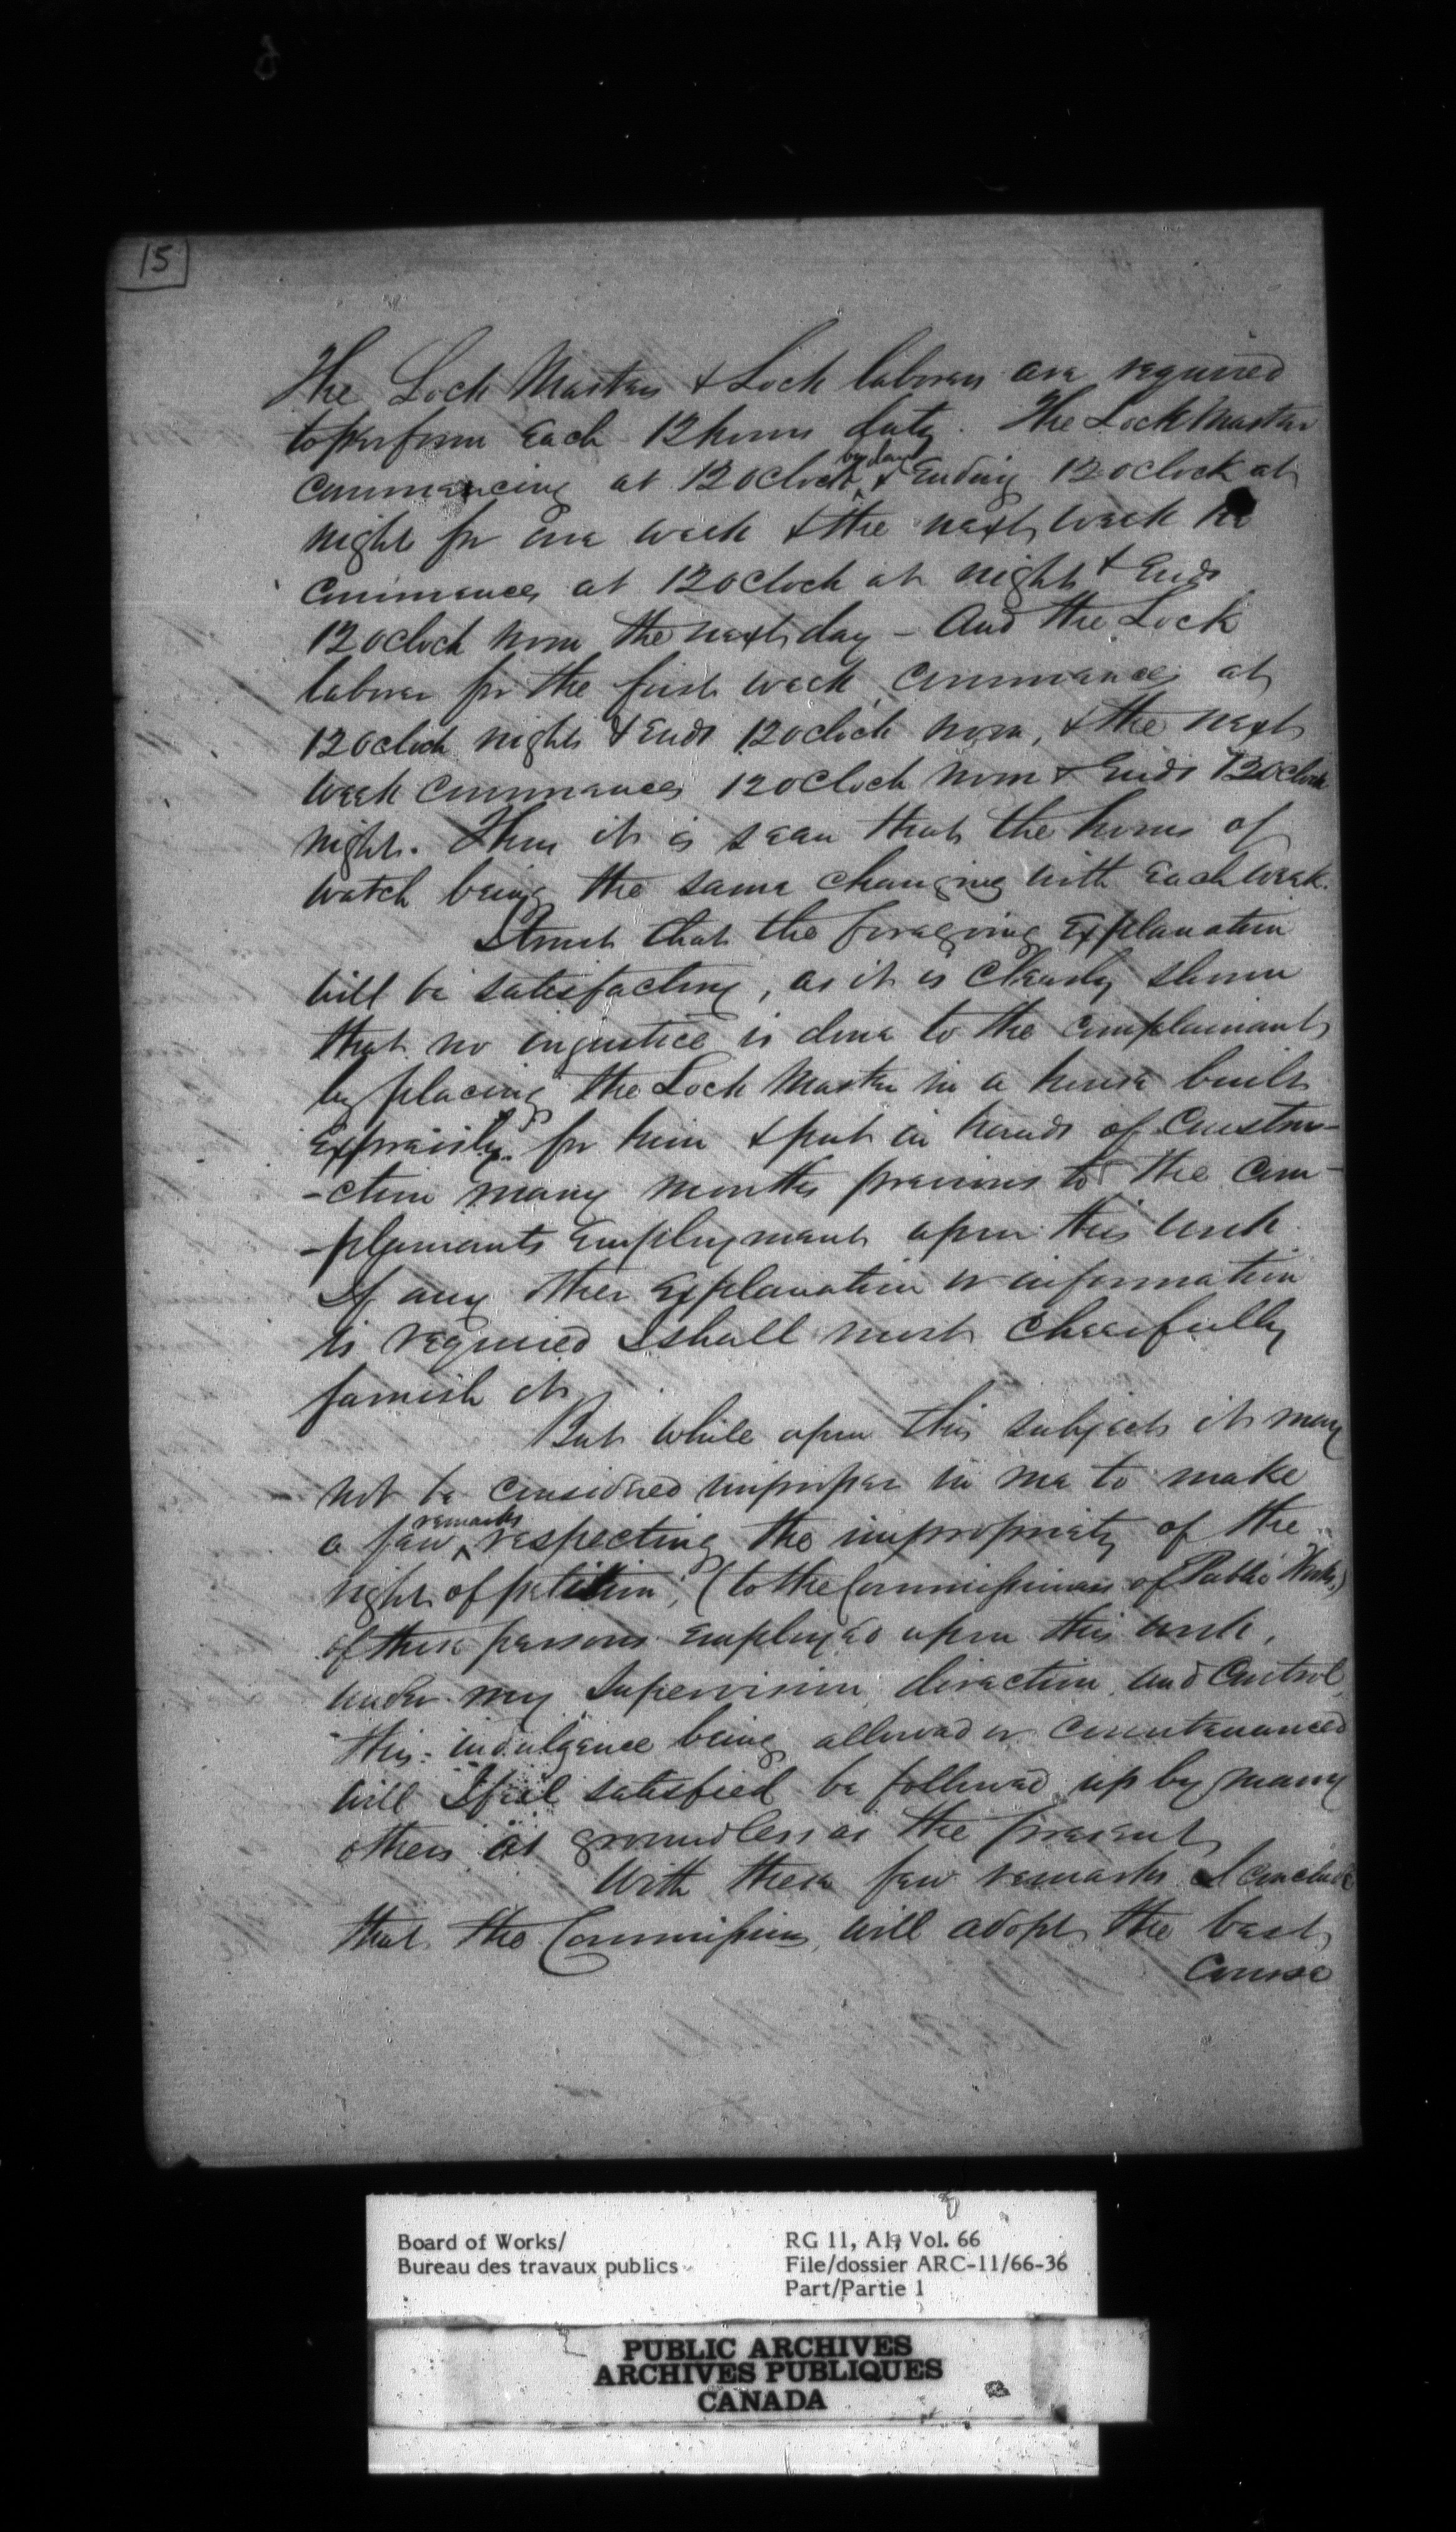 15
The Lock Masters & Lock laborers are required
to perform each 12 hours duty. The Lock Master
commencing at 12 oclock by day & Ending 12 oclock at
night for one week & the next week he
commences at 12 oclock at night & Ends
12 oclock noon the next day - And the Lock
laborer for the first week commences at
12 oclock night & Ends 12 oclock noon, & the next
week commences 12 oclock noon & Ends 12 oclock
night. Thus it is seen that the hours of
watch being the same changing with each week.
I trust that the foregoing Explanation
will be satisfactory, as it is clearly shown
that no injustice is done to the complainant
by placing the Lock Master in a house built
Expressly for him & put in hands of Constru-
-ction many months previous to the com-
-plainants Employment upon this work.
If any other Explanation or information
is required I shall most cheerfully
furnish it.
But while upon this subject it may
not be considered improper in me to make
a few remarks respecting the impropriety of the
right of petition, (to the Commissioners of Public Works,)
of those persons Employed upon this work,
under my supervision, direction, and Control,
this indulgence being allowed or countenanced
will I feel satisfied be followed up by many
others as groundless as the present
With these few remarks I conclude
that the Commissioners will adopt the best
Course
Board of Works/
Bureau des travaux publics
RG 11, A1, Vol. 66
File/dossier ARC-11/66-36
Part/Partie 1
PUBLIC ARCHIVES
ARCHIVES PUBLIQUES
CANADA